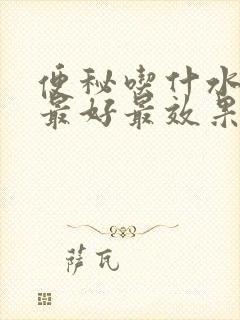 便秘喫什水
最好最效果
萨瓦